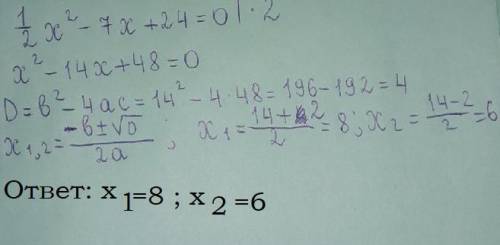 1/2 x² - 7x + 24 = 0 | · 2
x² - 14x + 48 = 0
D = в² - 4ac = 14² - 4 · 48 = 196 - 192 = 4
x₁,₂ = (-в ± √D)/2a ; x₁ = (14 + 2)/2 = 8 ; x₂ = (14 - 2)/2 = 6
Ответ: x 1=8 ; x 2 =6